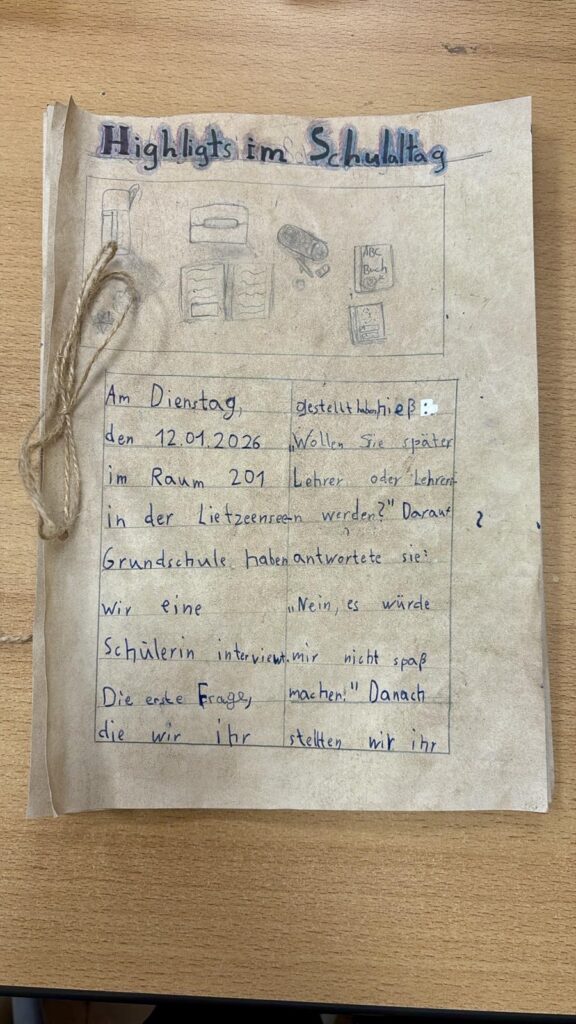 Highligts im Schulaltag
ABC
Buch
Am Dienstag,
den 12.01.2026
im Raum 201
in der Lietzensee-
Grundschule haben
wir eine
Schülerin interviewt.
Die erste Frage,
die wir ihr
gestellt haben, hieß:
„Wollen Sie später
Lehrer oder Lehrerin
werden?" Darauf
antwortete sie:
„Nein, es würde
mir nicht spaß
machen!" Danach
stellten wir ihr